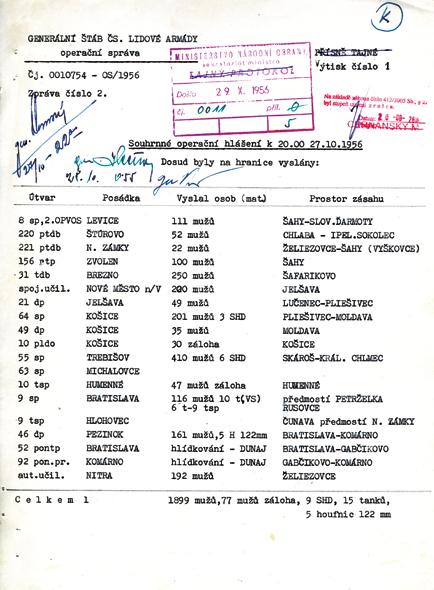 K
GENERÁLNÍ ŠTÁB ČS. LIDOVÉ ARMÁDY
operační správa
Čj. 0010754 - OS/1956
Zpráva číslo 2.
MINISTERSTVO NÁRODNÍ OBRANY
sekretariát ministra
TAJNÝ PROTOKOL
Došlo 29 X. 1956
čj. 0011 příl. 0
5
PŘÍSNĚ TAJNÉ
Výtisk číslo 1
Souhrnné operační hlášení k 20.00 27.10.1956
Dosud byly na hranice vyslány:
Útvar Posádka Vyslal osob (mat.) Prostor zásahu
8 sp,2.OPVOS LEVICE 111 mužů ŠAHY-SLOV.ĎARMOTY
220 ptdb ŠTÚROVO 52 mužů CHLABA - IPEL.SOKOLEC
221 ptdb N. ZÁMKY 22 mužů ŽELIEZOVCE-ŠAHY (VYŠKOVCE)
156 ptp ZVOLEN 100 mužů ŠAHY
31 tdb BREZNO 250 mužů ŠAFARIKOVO
spoj.učil. NOVÉ MĚSTO n/V 200 mužů JELŠAVA
21 dp JELŠAVA 49 mužů LUČENEC-PLIEŠIVEC
64 sp KOŠICE 201 mužů 3 SHD PLIEŠIVEC-MOLDAVA
49 dp KOŠICE 35 mužů MOLDAVA
10 pldo KOŠICE 30 záloha KOŠICE
55 sp TREBIŠOV 410 mužů 6 SHD SKÁROŠ-KRÁL. CHLMEC
63 sp MICHALOVCE
10 tsp HUMENNÉ 47 mužů záloha HUMENNÉ
9 sp BRATISLAVA 116 mužů 10 t(VS) předmostí PETRŽELKA
6 t-9 tsp RUSOVCE
9 tsp HLOHOVEC ČUNAVA předmostí N. ZÁMKY
46 dp PEZINOK 161 mužů,5 H 122mm BRATISLAVA-KOMÁRNO
52 pontp BRATISLAVA hlídkování - DUNAJ BRATISLAVA-GABČIKOVO
92 pon.pr. KOMÁRNO hlídkování - DUNAJ GABČIKOVO-KOMÁRNO
aut.učil. NITRA 192 mužů ŽELIEZOVCE
Celkem: 1899 mužů,77 mužů záloha, 9 SHD, 15 tanků,
5 houfnic 122 mm